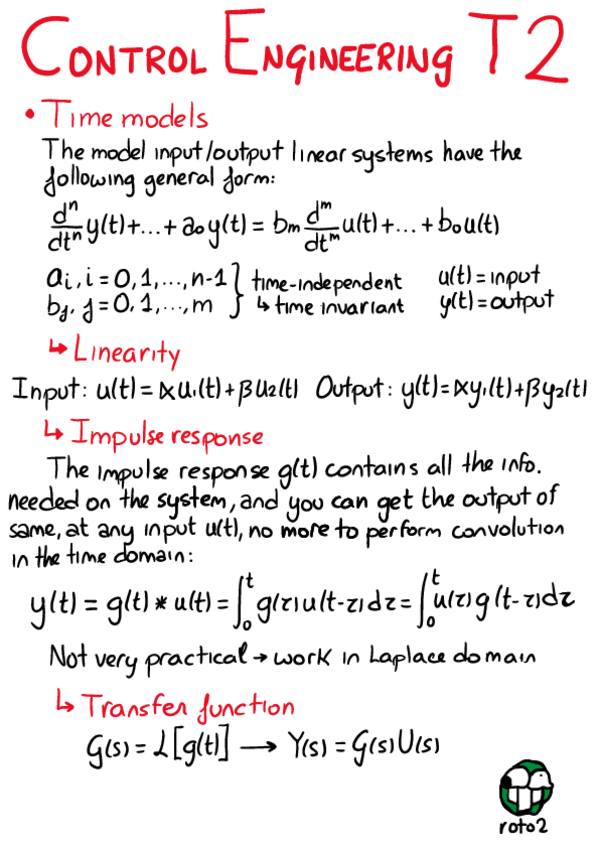 CONTROL ENGINEERING T2
• Time models
The model input/output linear systems have the
following general form:
dⁿ/dtⁿ y(t)+...+a₀y(t) = bₘ dᵐ/dtᵐ u(t)+...+b₀u(t)
aᵢ, i = 0,1,...,n-1 } time-independent u(t) = input
bⱼ, j = 0,1,...,m } ↳ time invariant y(t) = output
↳ Linearity
Input: u(t) = αu₁(t)+βu₂(t) Output: y(t)=αy₁(t)+βy₂(t)
↳ Impulse response
The impulse response g(t) contains all the info.
needed on the system, and you can get the output of
same, at any input u(t), no more to perform convolution
in the time domain:
y(t) = g(t) * u(t) = ∫₀ᵗ g(τ)u(t-τ)dτ = ∫₀ᵗ u(τ)g(t-τ)dτ
Not very practical → work in Laplace domain
↳ Transfer function
G(s) = L[g(t)] → Y(s) = G(s)U(s)
roto2